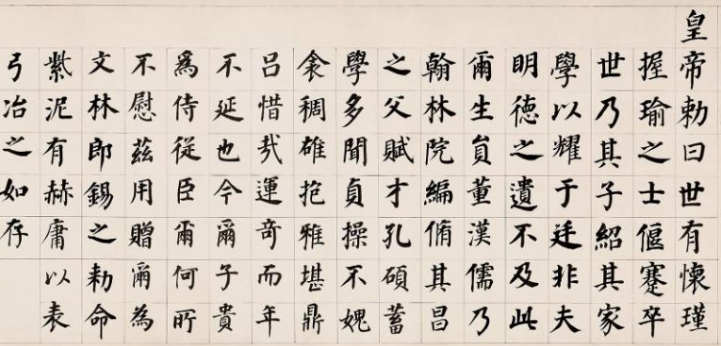 皇帝勅曰世有懷瑾
握瑜之士偃蹇卒
世乃其子紹其家
學以耀于廷非夫
明德之遺不及此
爾生員董漢儒乃
翰林院編脩其昌
之父賦才孔碩蓄
學多聞貞操不媿
衾稠雄抱雅堪鼎
呂惜㦲運奇而年
不延也今爾子貴
為侍從臣爾何所
不慰茲用贈爾為
文林郎錫之勅命
紫泥有赫庸以表
弓冶之如存